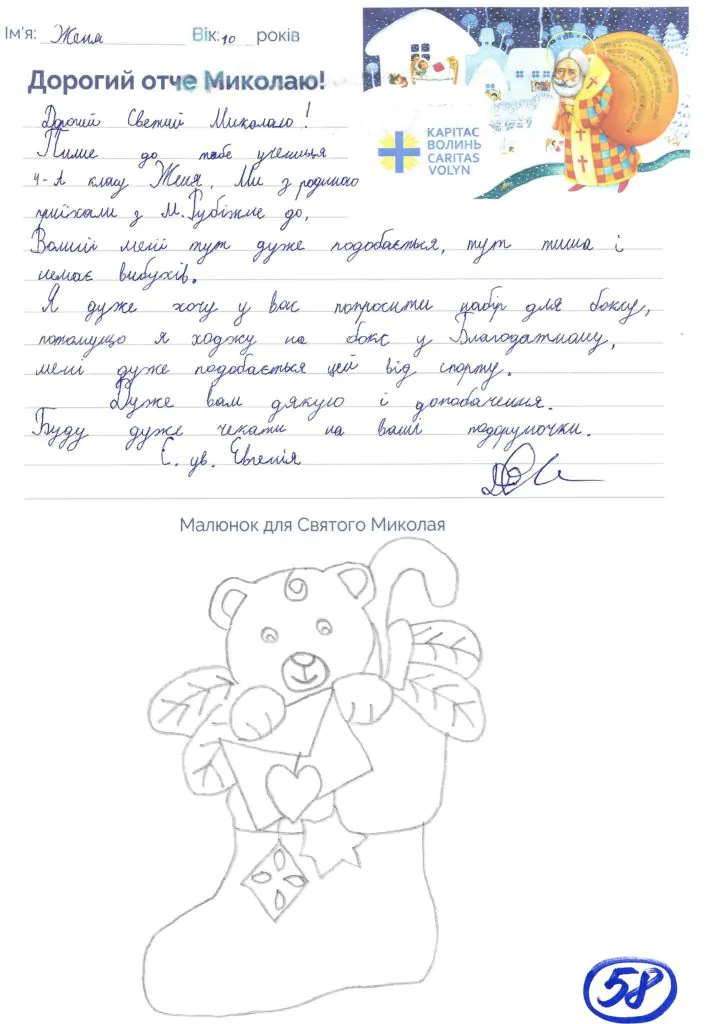 Ім'я: Женя Вік: 10 років
Дорогий отче Миколаю!
КАРІТАС
ВОЛИНЬ
CARITAS
VOLYN
Дорогий Светий Миколаю!
Пише до тебе учениця
4-А класу Женя. Ми з родиною
приїхали з м. Рубіжне до,
Волині мені тут дуже подобається, тут тиша і
немає вибухів.
Я дуже хочу у вас попросити набір для боксу,
потомущо я ходжу на бокс у Благодатному,
мені дуже подобається цей від спорту.
Дуже вам дякую і допобачення.
Буду дуже чекати на ваші подаруночки.
С. ув. Евгенія
Малюнок для Святого Миколая
58